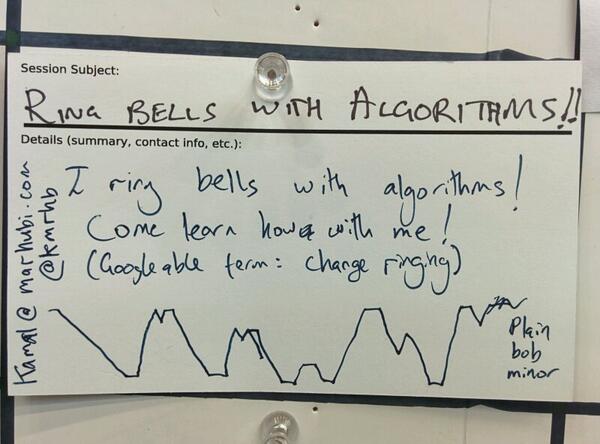 Session Subject:
RING BELLS WITH ALGORITHMS!!
Details (summary, contact info, etc.):
I ring bells with algorithms!
Come learn how with me!
(Googleable term: change ringing)
Kamal@marhubi.com
@kmrhb
Plain
bob
minor